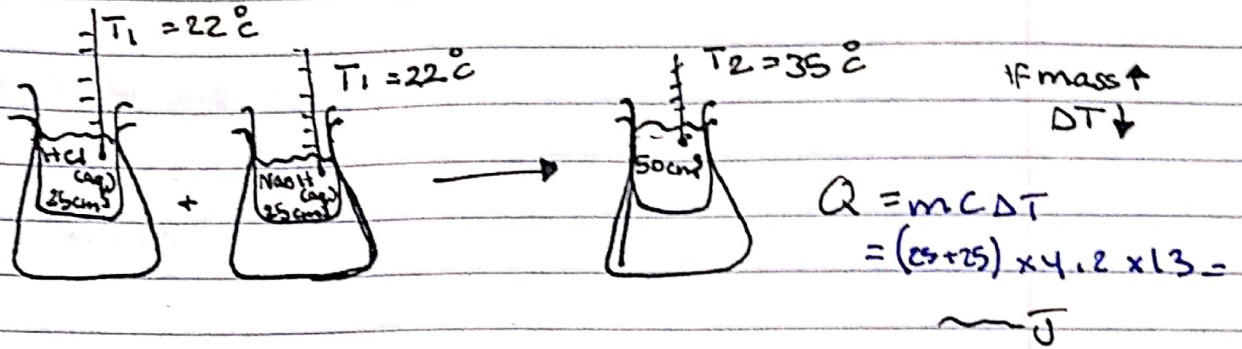 T1 = 22°C
T1 = 22°C
T2 = 35°C
If mass ↑
ΔT ↓
HCl
(aq)
25cm³
+
NaOH
(aq)
25cm³
→
50cm³
Q = mCΔT
= (25+25) × 4.2 × 13 =
J